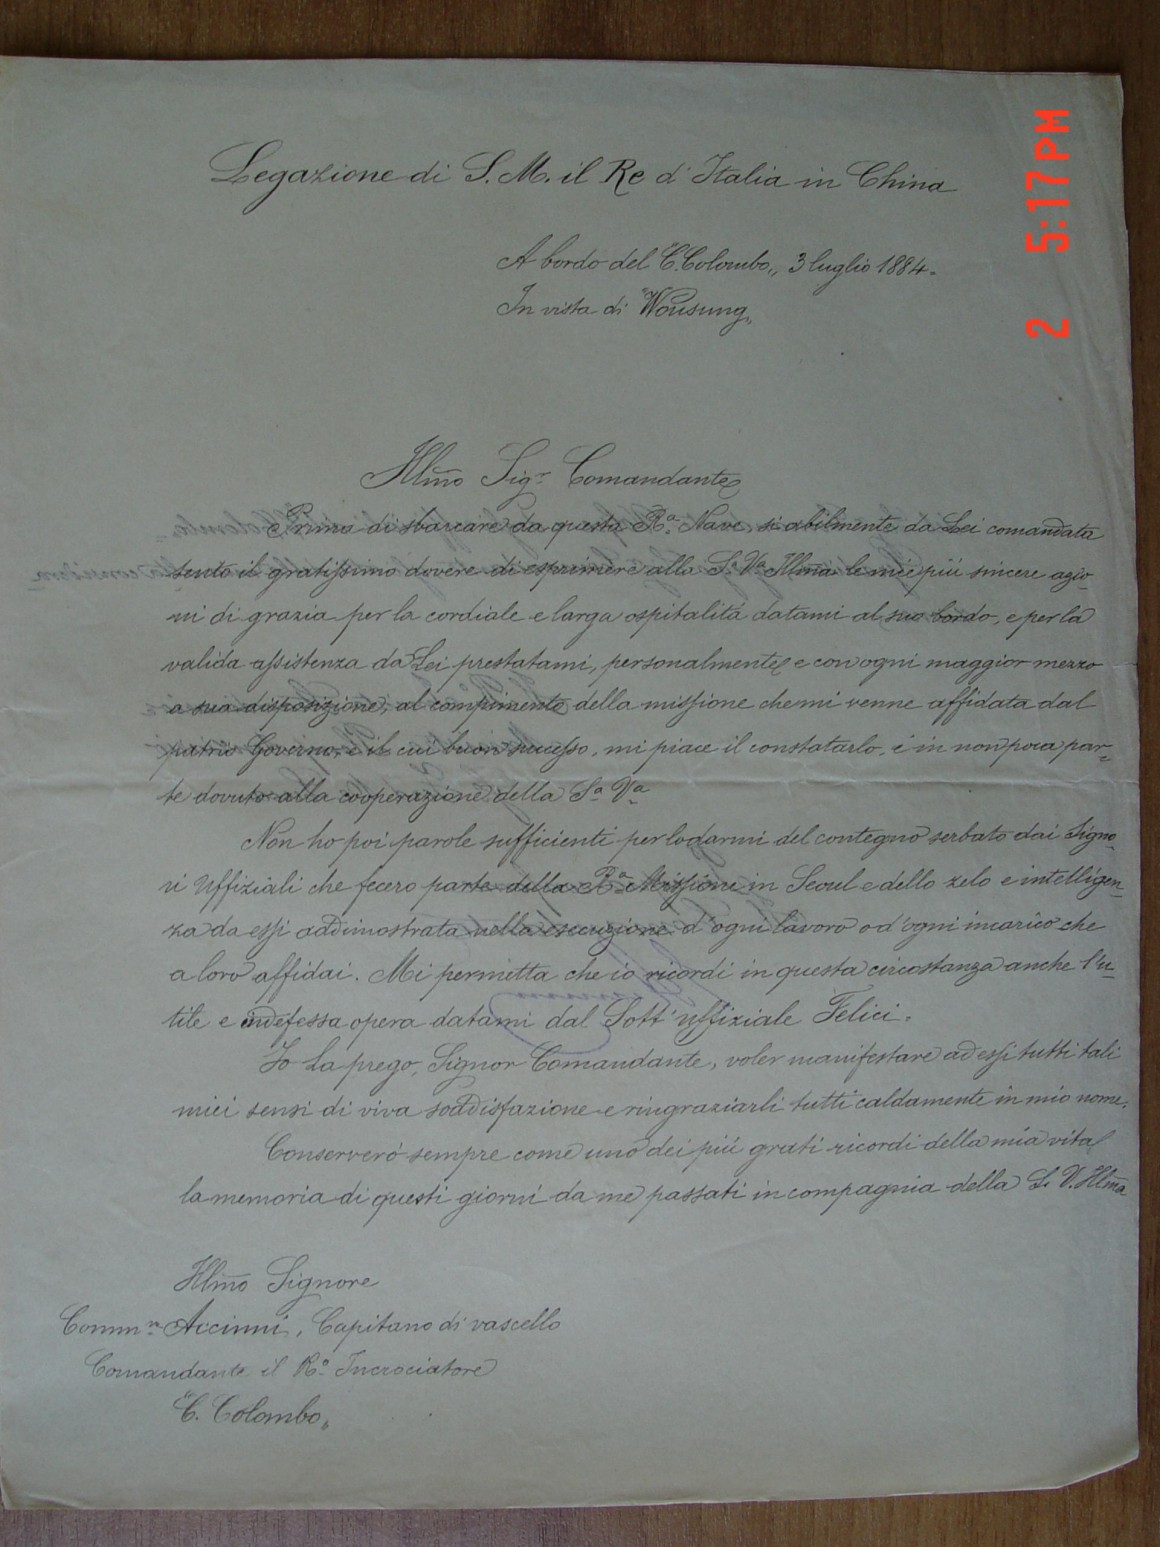 Legazione di S. M. il Re d'Italia in China
A bordo del "C. Colombo„ 3 luglio 1884.
In vista di "Wousung„
Illmo Sigr Comandante
Prima di sbarcare da questa Ra Nave, sì abilmente da Lei comandata
sento il gratissimo dovere di esprimere alla Sa Va Illma le mie più sincere azio-
ni di grazia per la cordiale e larga ospitalità datami al suo bordo, e per la
valida assistenza da Lei prestatami, personalmente e con ogni maggior mezzo
a sua disposizione, al compimento della missione che mi venne affidata dal
patrio Governo, e il cui buon successo, mi piace il constatarlo, è in non poca par-
te dovuto alla cooperazione della Sa Va
Non ho poi parole sufficienti per lodarmi del contegno serbato dai Signo-
ri Uffiziali che fecero parte della Ra Missione in Seoul e dello zelo e intelligen-
za da essi addimostrata nella esecuzione d'ogni lavoro o d'ogni incarico che
a loro affidai. Mi permetta che io ricordi in questa circostanza anche l'u-
tile e indefessa opera datami dal Sott'uffiziale Felici.
Io La prego, Signor Comandante, voler manifestare ad essi tutti tali
miei sensi di viva soddisfazione e ringraziarli tutti caldamente in mio nome.
Conserverò sempre come uno dei più grati ricordi della mia vita
la memoria di questi giorni da me passati in compagnia della S. V. Illma
Illmo Signore
Comm.re Accinni, Capitano di vascello
Comandante il Ro Incrociatore
"C. Colombo„
2 5:17 PM